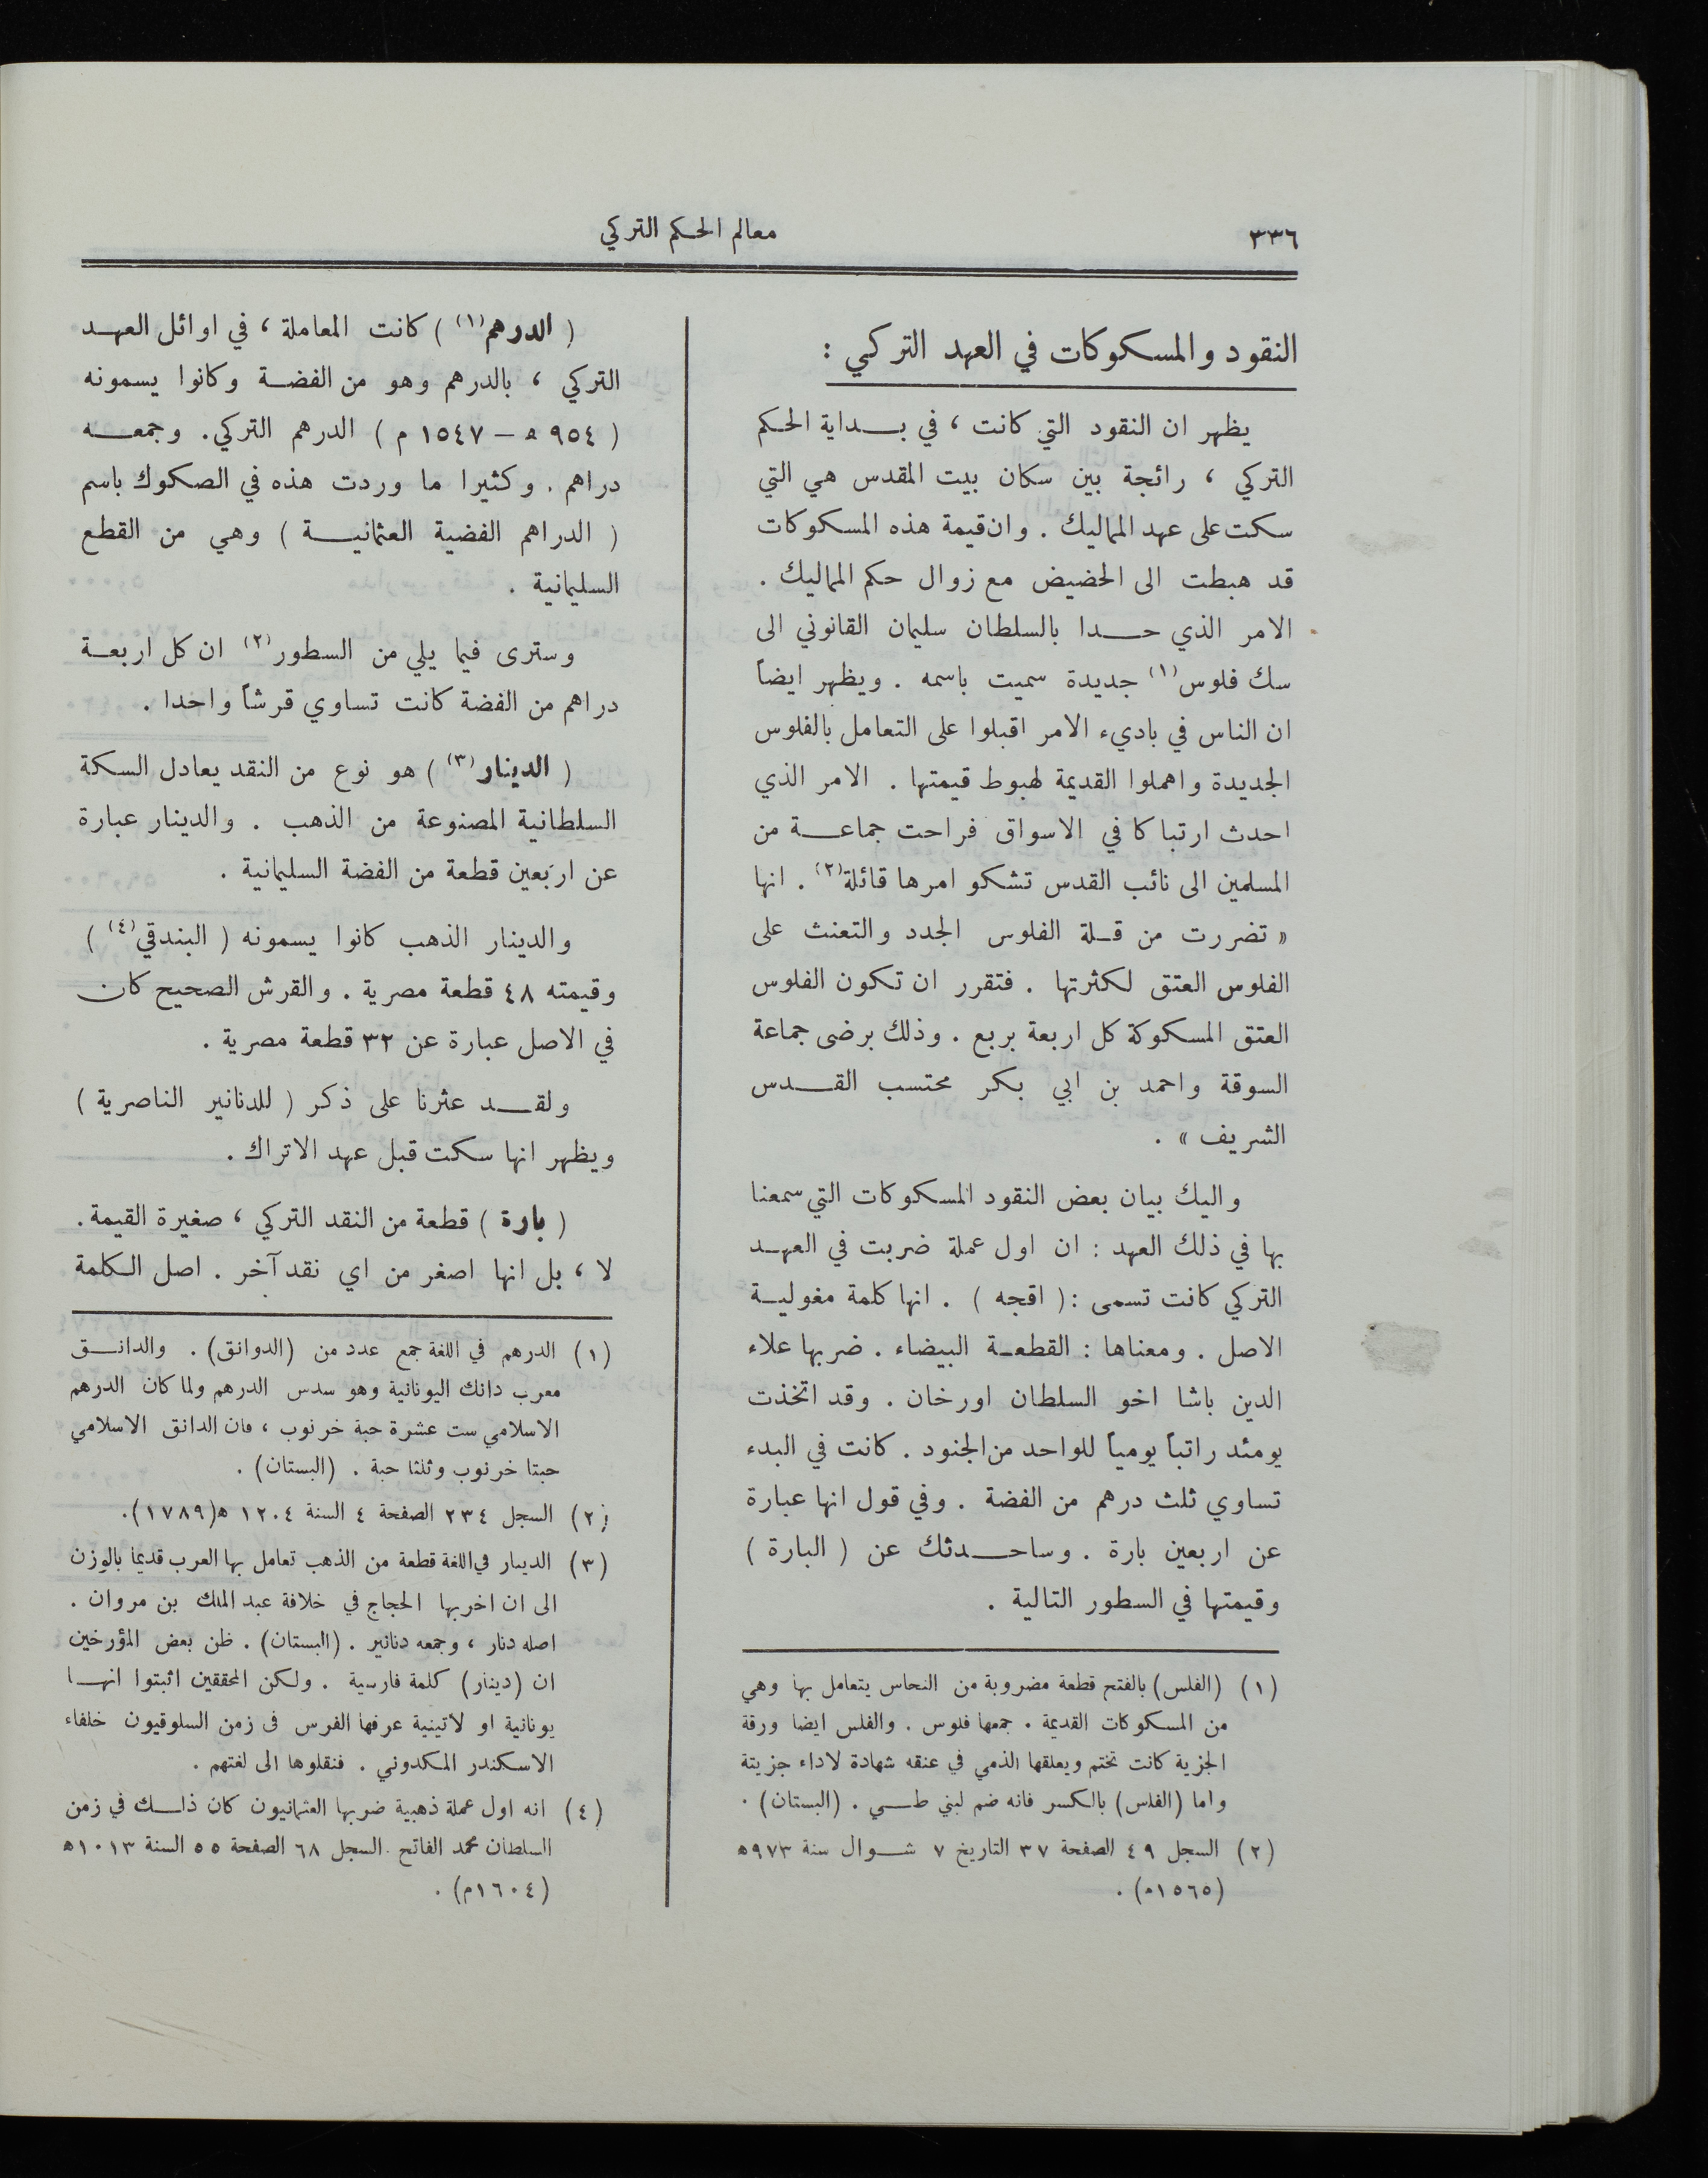 ٣٣٦
معالم الحكم التركي
النقود والمسكوكات في العهد التركي :
يظهر ان النقود التي كانت ، في بداية الحكم
التركي ، رائجة بين سكان بيت المقدس هي التي
سكت على عهد المماليك . وان قيمة هذه المسكوكات
قد هبطت الى الحضيض مع زوال حكم المماليك .
الامر الذي حدا بالسلطان سليمان القانوني الى
سك فلوس(١) جديدة سميت باسمه . ويظهر ايضاً
ان الناس في باديء الامر اقبلوا على التعامل بالفلوس
الجديدة واهملوا القديمة لهبوط قيمتها . الامر الذي
احدث ارتباكا في الاسواق فراحت جماعة من
المسلمين الى نائب القدس تشكو امرها قائلة(٢) . انها
« تضررت من قلة الفلوس الجدد والتعنث على
الفلوس العتق لكثرتها . فتقرر ان تكون الفلوس
العتق المسكوكة كل اربعة بربع . وذلك برضى جماعة
السوقة واحمد بن ابي بكر محتسب القدس
الشريف » .
واليك بيان بعض النقود المسكوكات التي سمعنا
بها في ذلك العهد : ان اول عملة ضربت في العهد
التركي كانت تسمى : ( اقجه ) . انها كلمة مغولية
الاصل . ومعناها : القطعة البيضاء . ضربها علاء
الدين باشا اخو السلطان اورخان . وقد اتخذت
يومئد راتباً يومياً للواحد من الجنود . كانت في البدء
تساوي ثلث درهم من الفضة . وفي قول انها عبارة
عن اربعين بارة . وساحدثك عن ( البارة )
وقيمتها في السطور التالية .
(١) (الفلس) بالفتح قطعة مضروبة من النحاس يتعامل بها وهي
من المسكوكات القديمة . جمعها فلوس . والفلس ايضا ورقة
الجزية كانت تختم ويعلقها الذمي في عنقه شهادة لاداء جزيتة
واما (الفلس) بالكسر فانه ضم لبني طي . (البستان) .
(٢) السجل ٤٩ الصفحة ٣٧ التاريخ ٧ شوال سنة ٩٧٣ه
(١٥٦٥م) .
( الدرهم(١) ) كانت المعاملة ، في اوائل العهد
التركي ، بالدرهم وهو من الفضة وكانوا يسمونه
( ٩٥٤ ه – ١٥٤٧ م ) الدرهم التركي. وجمعه
دراهم . وكثيرا ما وردت هذه في الصكوك باسم
( الدراهم الفضية العثمانية ) وهي من القطع
السليمانية .
وسترى فيما يلي من السطور(٢) ان كل اربعة
دراهم من الفضة كانت تساوي قرشاً واحدا .
( الدينار(٣) ) هو نوع من النقد يعادل السكة
السلطانية المصنوعة من الذهب . والدينار عبارة
عن اربعين قطعة من الفضة السليمانية .
والدينار الذهب كانوا يسمونه ( البندقي(٤) )
وقيمته ٤٨ قطعة مصرية . والقرش الصحيح كان
في الاصل عبارة عن ٣٢ قطعة مصرية .
ولقد عثرنا على ذكر ( للدنانير الناصرية )
ويظهر انها سكت قبل عهد الاتراك .
( بارة ) قطعة من النقد التركي ، صغيرة القيمة.
لا ، بل انها اصغر من اي نقد آخر . اصل الكلمة
(١) الدرهم في اللغة جمع عدد من (الدوانق) . والدانق
معرب دانك اليونانية وهو سدس الدرهم ولما كان الدرهم
الاسلامي ست عشرة حبة خرنوب ، فان الدانق الاسلامي
حبتا خرنوب وثلثا حبة . (البستان) .
(٢) السجل ٢٣٤ الصفحة ٤ السنة ١٢٠٤ ه(١٧٨٩).
(٣) الدينار في اللغة قطعة من الذهب تعامل بها العرب قديما بالوزن
الى ان اخربها الحجاج في خلافة عبد الملك بن مروان .
اصله دنار ، وجمعه دنانير . (البستان) . ظن بعض المؤرخين
ان (دينار) كلمة فارسية . ولكن المحققين اثبتوا انها
يونانية او لاتينية عرفها الفرس في زمن السلوقيون خلفاء
الاسكندر المكدوني . فنقلوها الى لغتهم .
(٤) انه اول عملة ذهبية ضربها العثمانيون كان ذلك في زمن
السلطان محمد الفاتح . السجل ٦٨ الصفحة ٥٥ السنة ١٠١٣ه
(١٦٠٤م) .